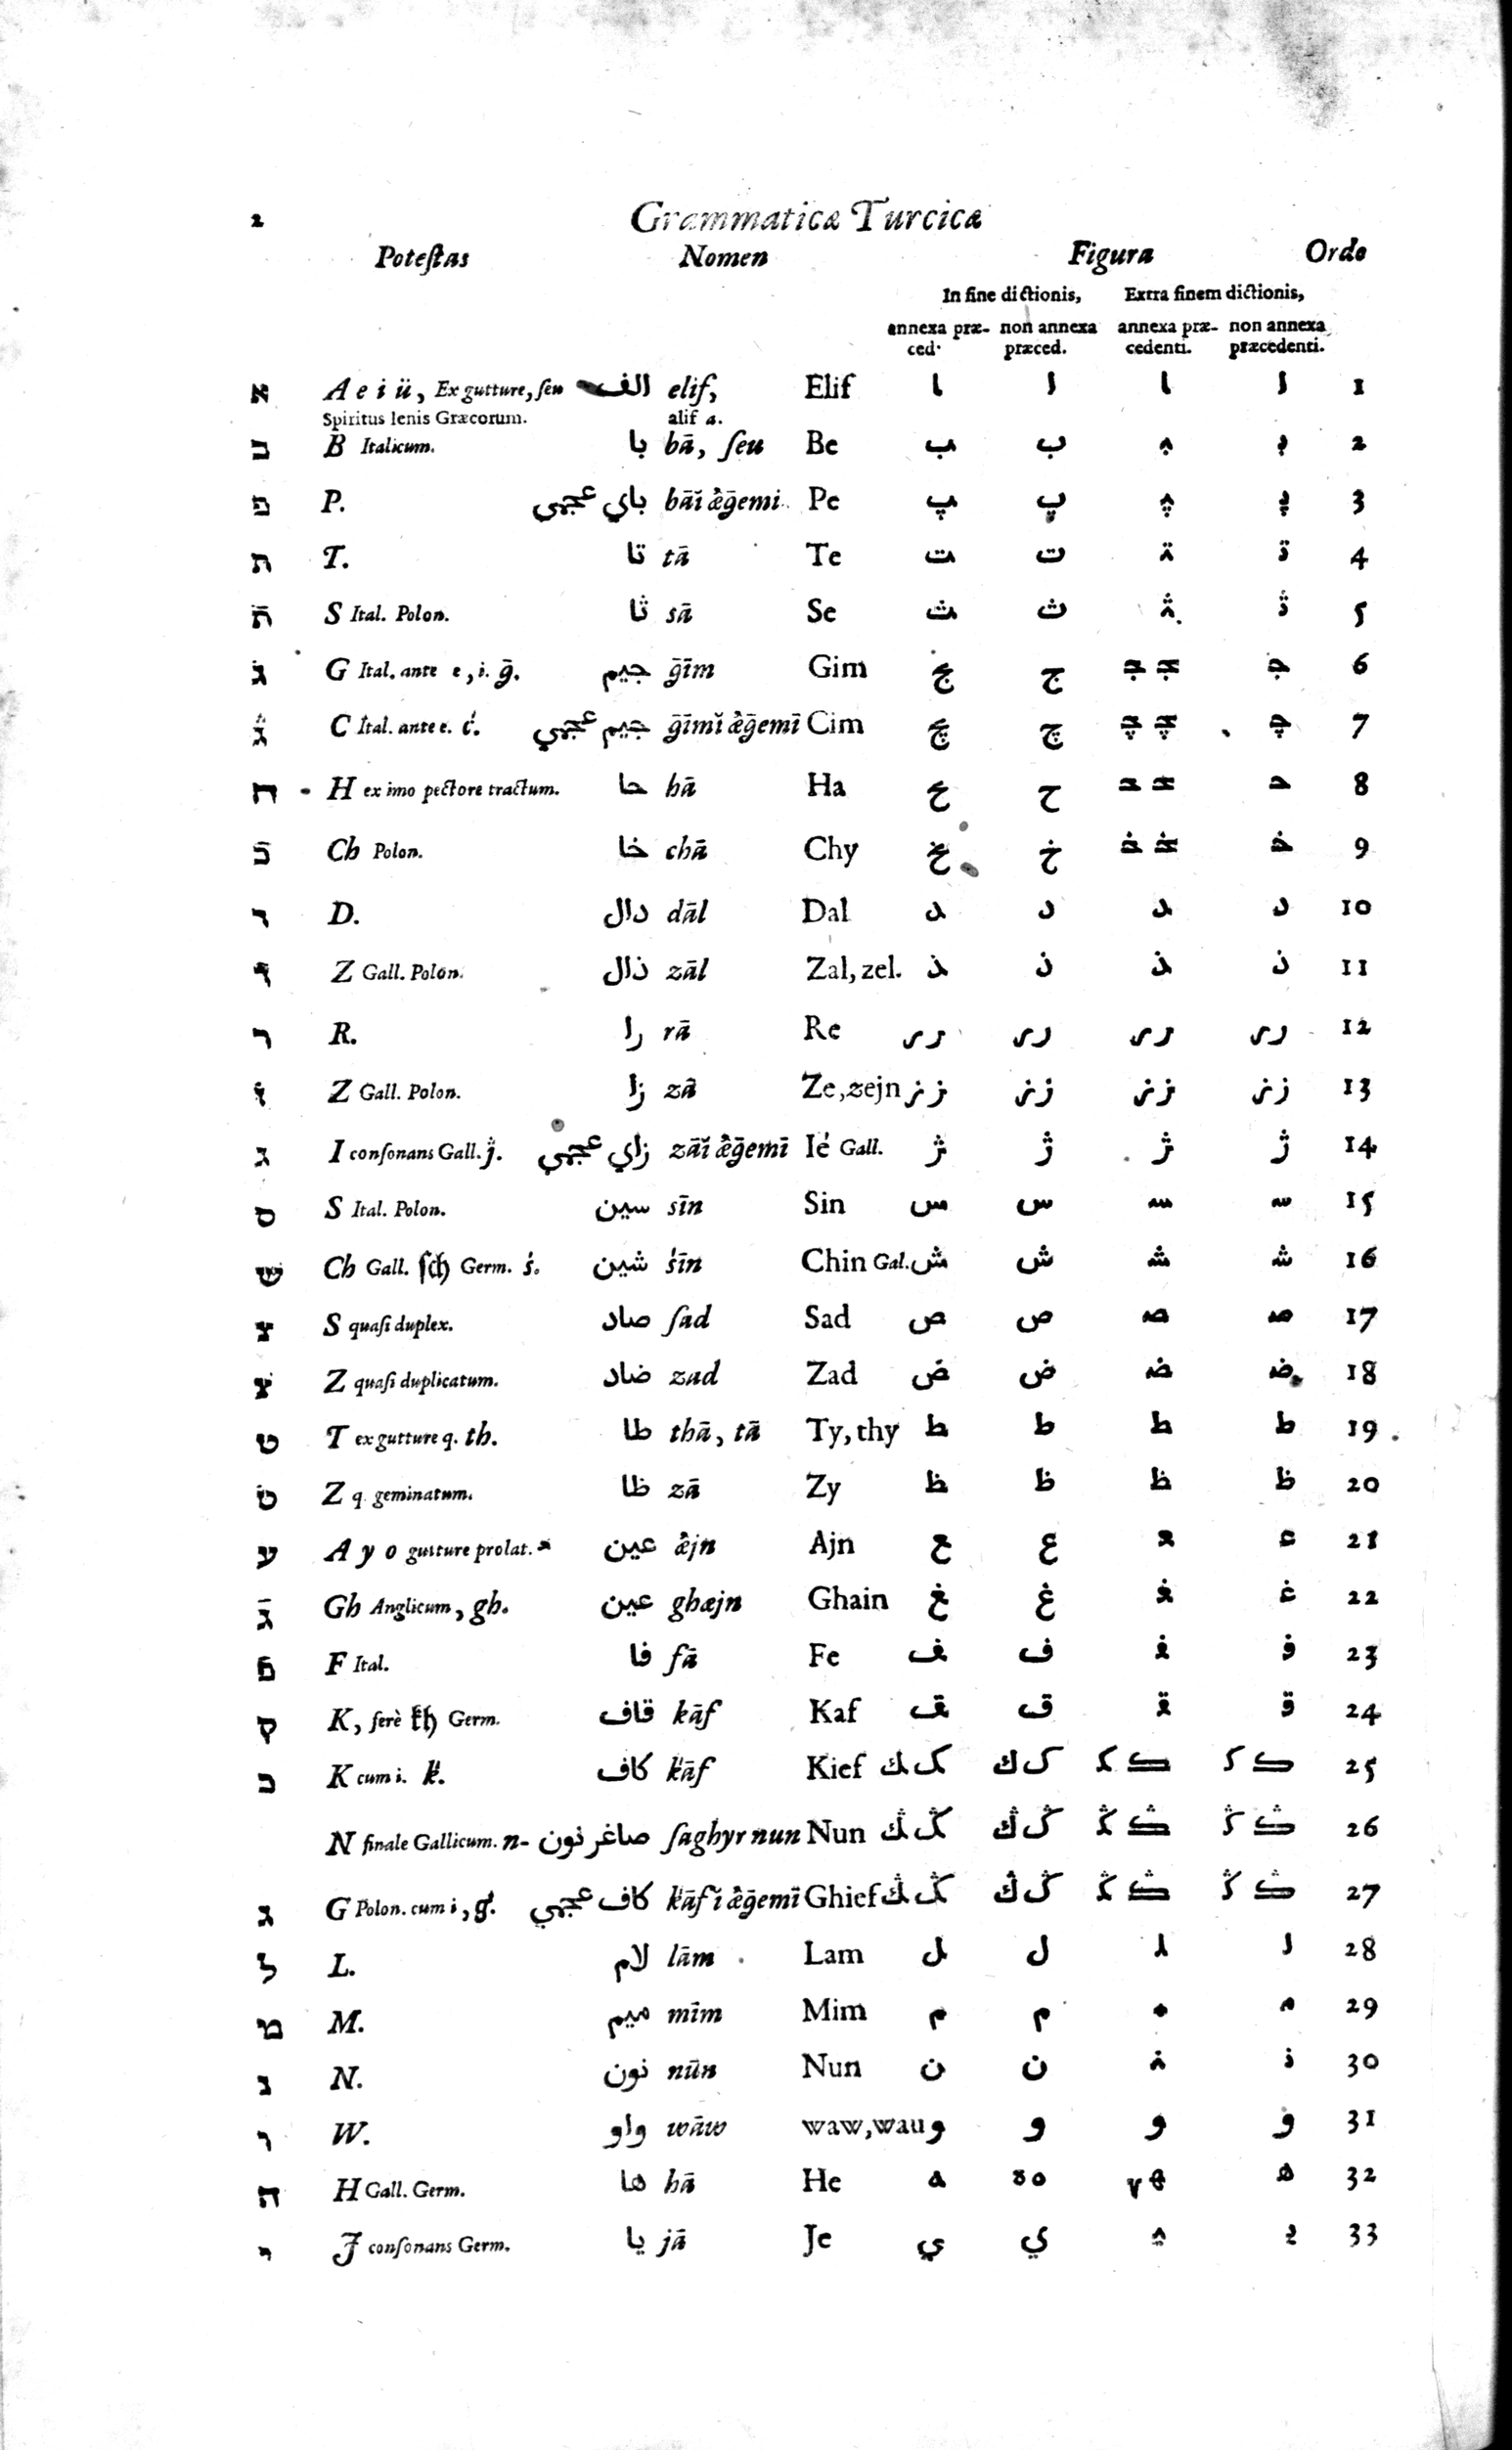 2 Grammaticæ Turcicæ
Poteſtas Nomen Figura Ordo
In fine dictionis, Extra finem dictionis,
annexa præ- non annexa annexa præ- non annexa
ced. præced. cedenti. præcedenti.
א A e i ü, Ex gutture, ſeu الف elif, Elif ا ا ا ا 1
Spiritus lenis Græcorum. alif a.
ב B Italicum. با bā, ſeu Be ب ب ب ب 2
פ P. باي عجمي bāǐ æ̂ḡemi Pe پ پ پ پ 3
ת T. تا tā Te ت ت ت ت 4
ת̄ S Ital. Polon. ثا sā Se ث ث ث ث 5
ג G Ital. ante e, i. ḡ. جيم ḡīm Gim ج ج ج ج ج 6
ג C Ital. ante e. ć. جيم عجمي ḡīmǐ æ̂ḡemī Cim چ چ چ چ چ 7
ח H ex imo pectore tractum. حا hā Ha ح ح ح ح ح 8
כ̄ Ch Polon. خا chā Chy خ خ خ خ خ 9
ד D. دال dāl Dal د د د د 10
ד Z Gall. Polon. ذال zāl Zal, zel. ذ ذ ذ ذ 11
ר R. را rā Re ر ر ر ر ر ر ر ر 12
ז Z Gall. Polon. زا zā Ze, zejn ز ز ز ز ز ز ز ز 13
ג I conſonans Gall. j. زاي عجمي zāǐ æ̂ḡemī Ié Gall. ژ ژ ژ ژ 14
ס S Ital. Polon. سين sīn Sin س س س س 15
ש Ch Gall. ſch Germ. ś. شين śīn Chin Gal. ش ش ش ش 16
צ S quaſi duplex. صاد ſad Sad ص ص ص ص 17
צ Z quaſi duplicatum. ضاد zad Zad ض ض ض ض 18
ט T ex gutture q. th. طا thā, tā Ty, thy ط ط ط ط 19
ט Z q. geminatum. ظا zā Zy ظ ظ ظ ظ 20
ע A y o gutture prolat. عين æ̂jn Ajn ع ع ع ع 21
ג̄ Gh Anglicum, gh. عين ghæjn Ghain غ غ غ غ 22
פ F Ital. فا fā Fe ف ف ف ف 23
ק K, ferè kh Germ. قاف kāf Kaf ق ق ق ق 24
כ K cum i. k̈. كاف k̈āf Kief ك ک ك ک ک ک ک ک 25
N finale Gallicum. n- صاغر نون ſaghyr nun Nun ڭ ڭ ڭ ڭ ڭ ڭ ڭ ڭ 26
ג G Polon. cum i, g̈. كاف عجمي k̈āfǐ æ̂ḡemī Ghief ڭ ڭ ڭ ڭ ڭ ڭ ڭ ڭ 27
ל L. لام lām Lam ل ل ل ل 28
מ M. ميم mīm Mim م م م م 29
נ N. نون nūn Nun ن ن ن ن 30
ו W. واو wāw waw, wau و و و و 31
ה H Gall. Germ. ها hā He ه ه ه ه ه ه 32
י J conſonans Germ. يا jā Je ي ي ي ي 33